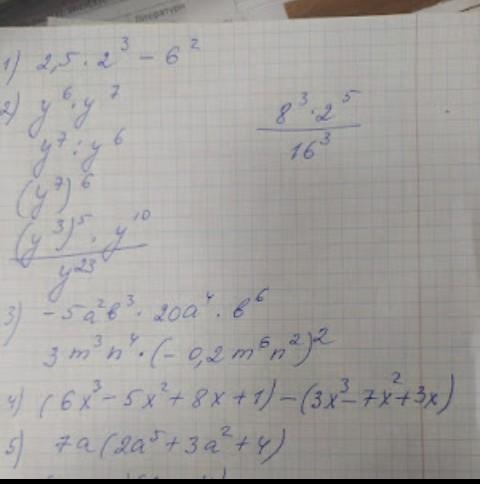 литературы
1) 2,5 · 2³ − 6²
2) y⁶ · y⁷
y⁷ : y⁶
(y⁷)⁶
(y³)⁵ · y¹⁰ / y²³
8³ · 2⁵ / 16³
3) −5a²b³ · 20a⁴ · b⁶
3m³n⁴ · (−0,2m⁶n²)²
4) (6x³ − 5x² + 8x + 1) − (3x³ − 7x² + 3x)
5) 7a(2a⁵ + 3a² + 4)